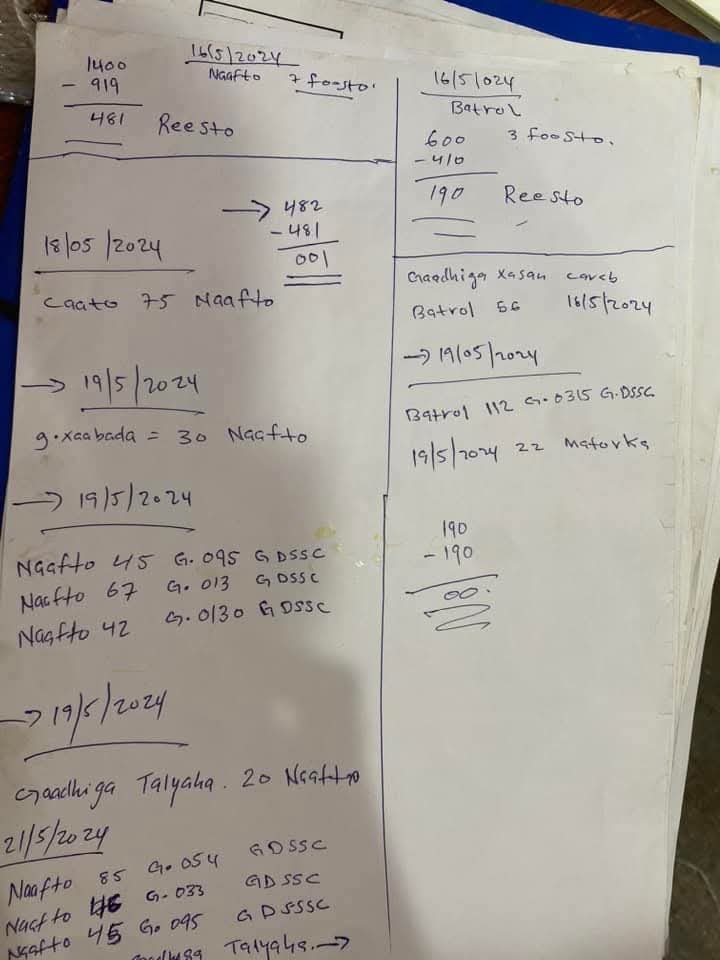 1400
- 919
481 Reesto
16/5/2024
Naafto 7 foosto.
18/05/2024
→ 482
- 481
001
Caato 75 Naafto
→ 19/5/2024
g.xaabada = 30 Naafto
→ 19/5/2024
Naafto 45 G.095 GDSSC
Naafto 67 G.013 GDSSC
Naafto 42 G.0130 GDSSC
→ 19/5/2024
Gaadhiga Talyaha. 20 Naafto
21/5/2024
Naafto 85 G.054 GDSSC
Naafto 46 G.033 GDSSC
Naafto 45 G.095 GDSSSC
Talyaha. →
16/5/024
Batrol
600 3 foosto.
- 410
190 Reesto
Gaadhiga Xasan careb
Batrol 56 16/5/2024
→ 19/05/2024
Batrol 112 G.0315 G.DSSC
19/5/2024 22 Matorka
190
- 190
00.